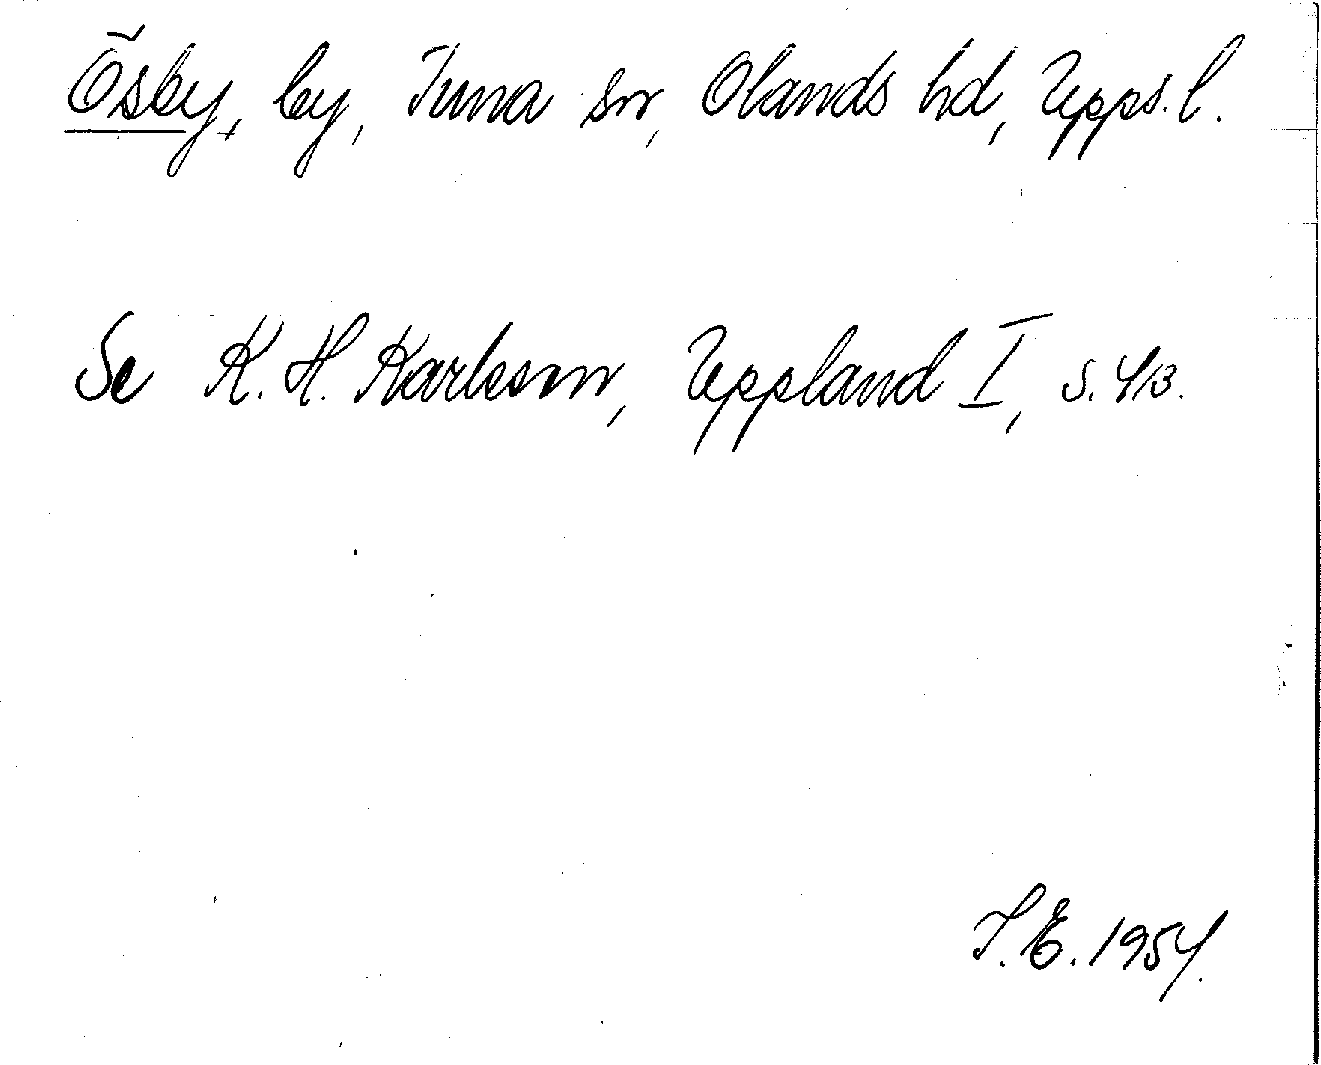 Ösby, by, Tuna sn, Olands hd, Upps. l.
Se K. H. Karlsson, Uppland I, s. 413.
I. E. 1954.